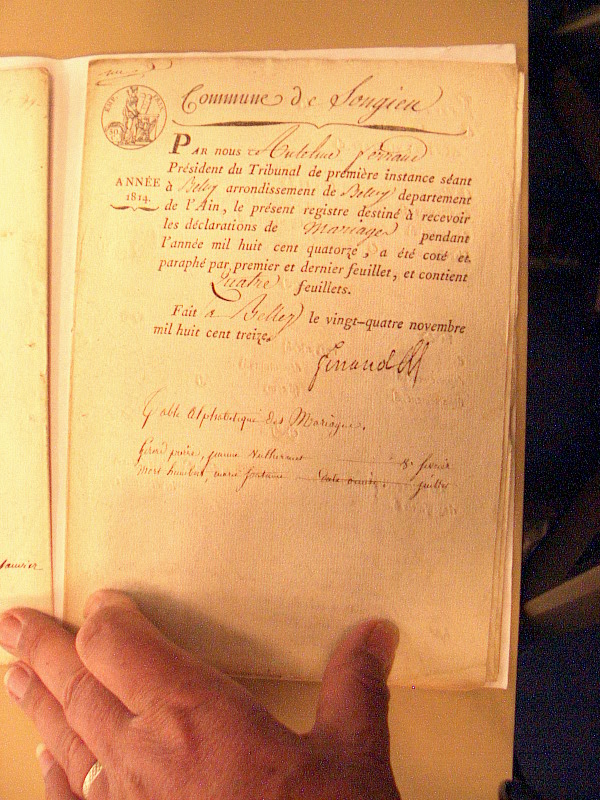 Commune de Songieu
PAR nous Antelme ferrand
Président du Tribunal de première instance séant
ANNÉE
1814.
à Belley arrondissement de Belley département
de l'Ain, le présent registre destiné à recevoir
les déclarations de Mariages pendant
l'année mil huit cent quatorze, a été coté et
paraphé par premier et dernier feuillet, et contient
Quatre feuillets.
Fait a Belley le vingt-quatre novembre
mil huit cent treize.
Table Alphabétique des Mariages.
pierre, jeanne 8 fevrier
Mort humbert, marie fontaine Date omise. juillet
Janvier